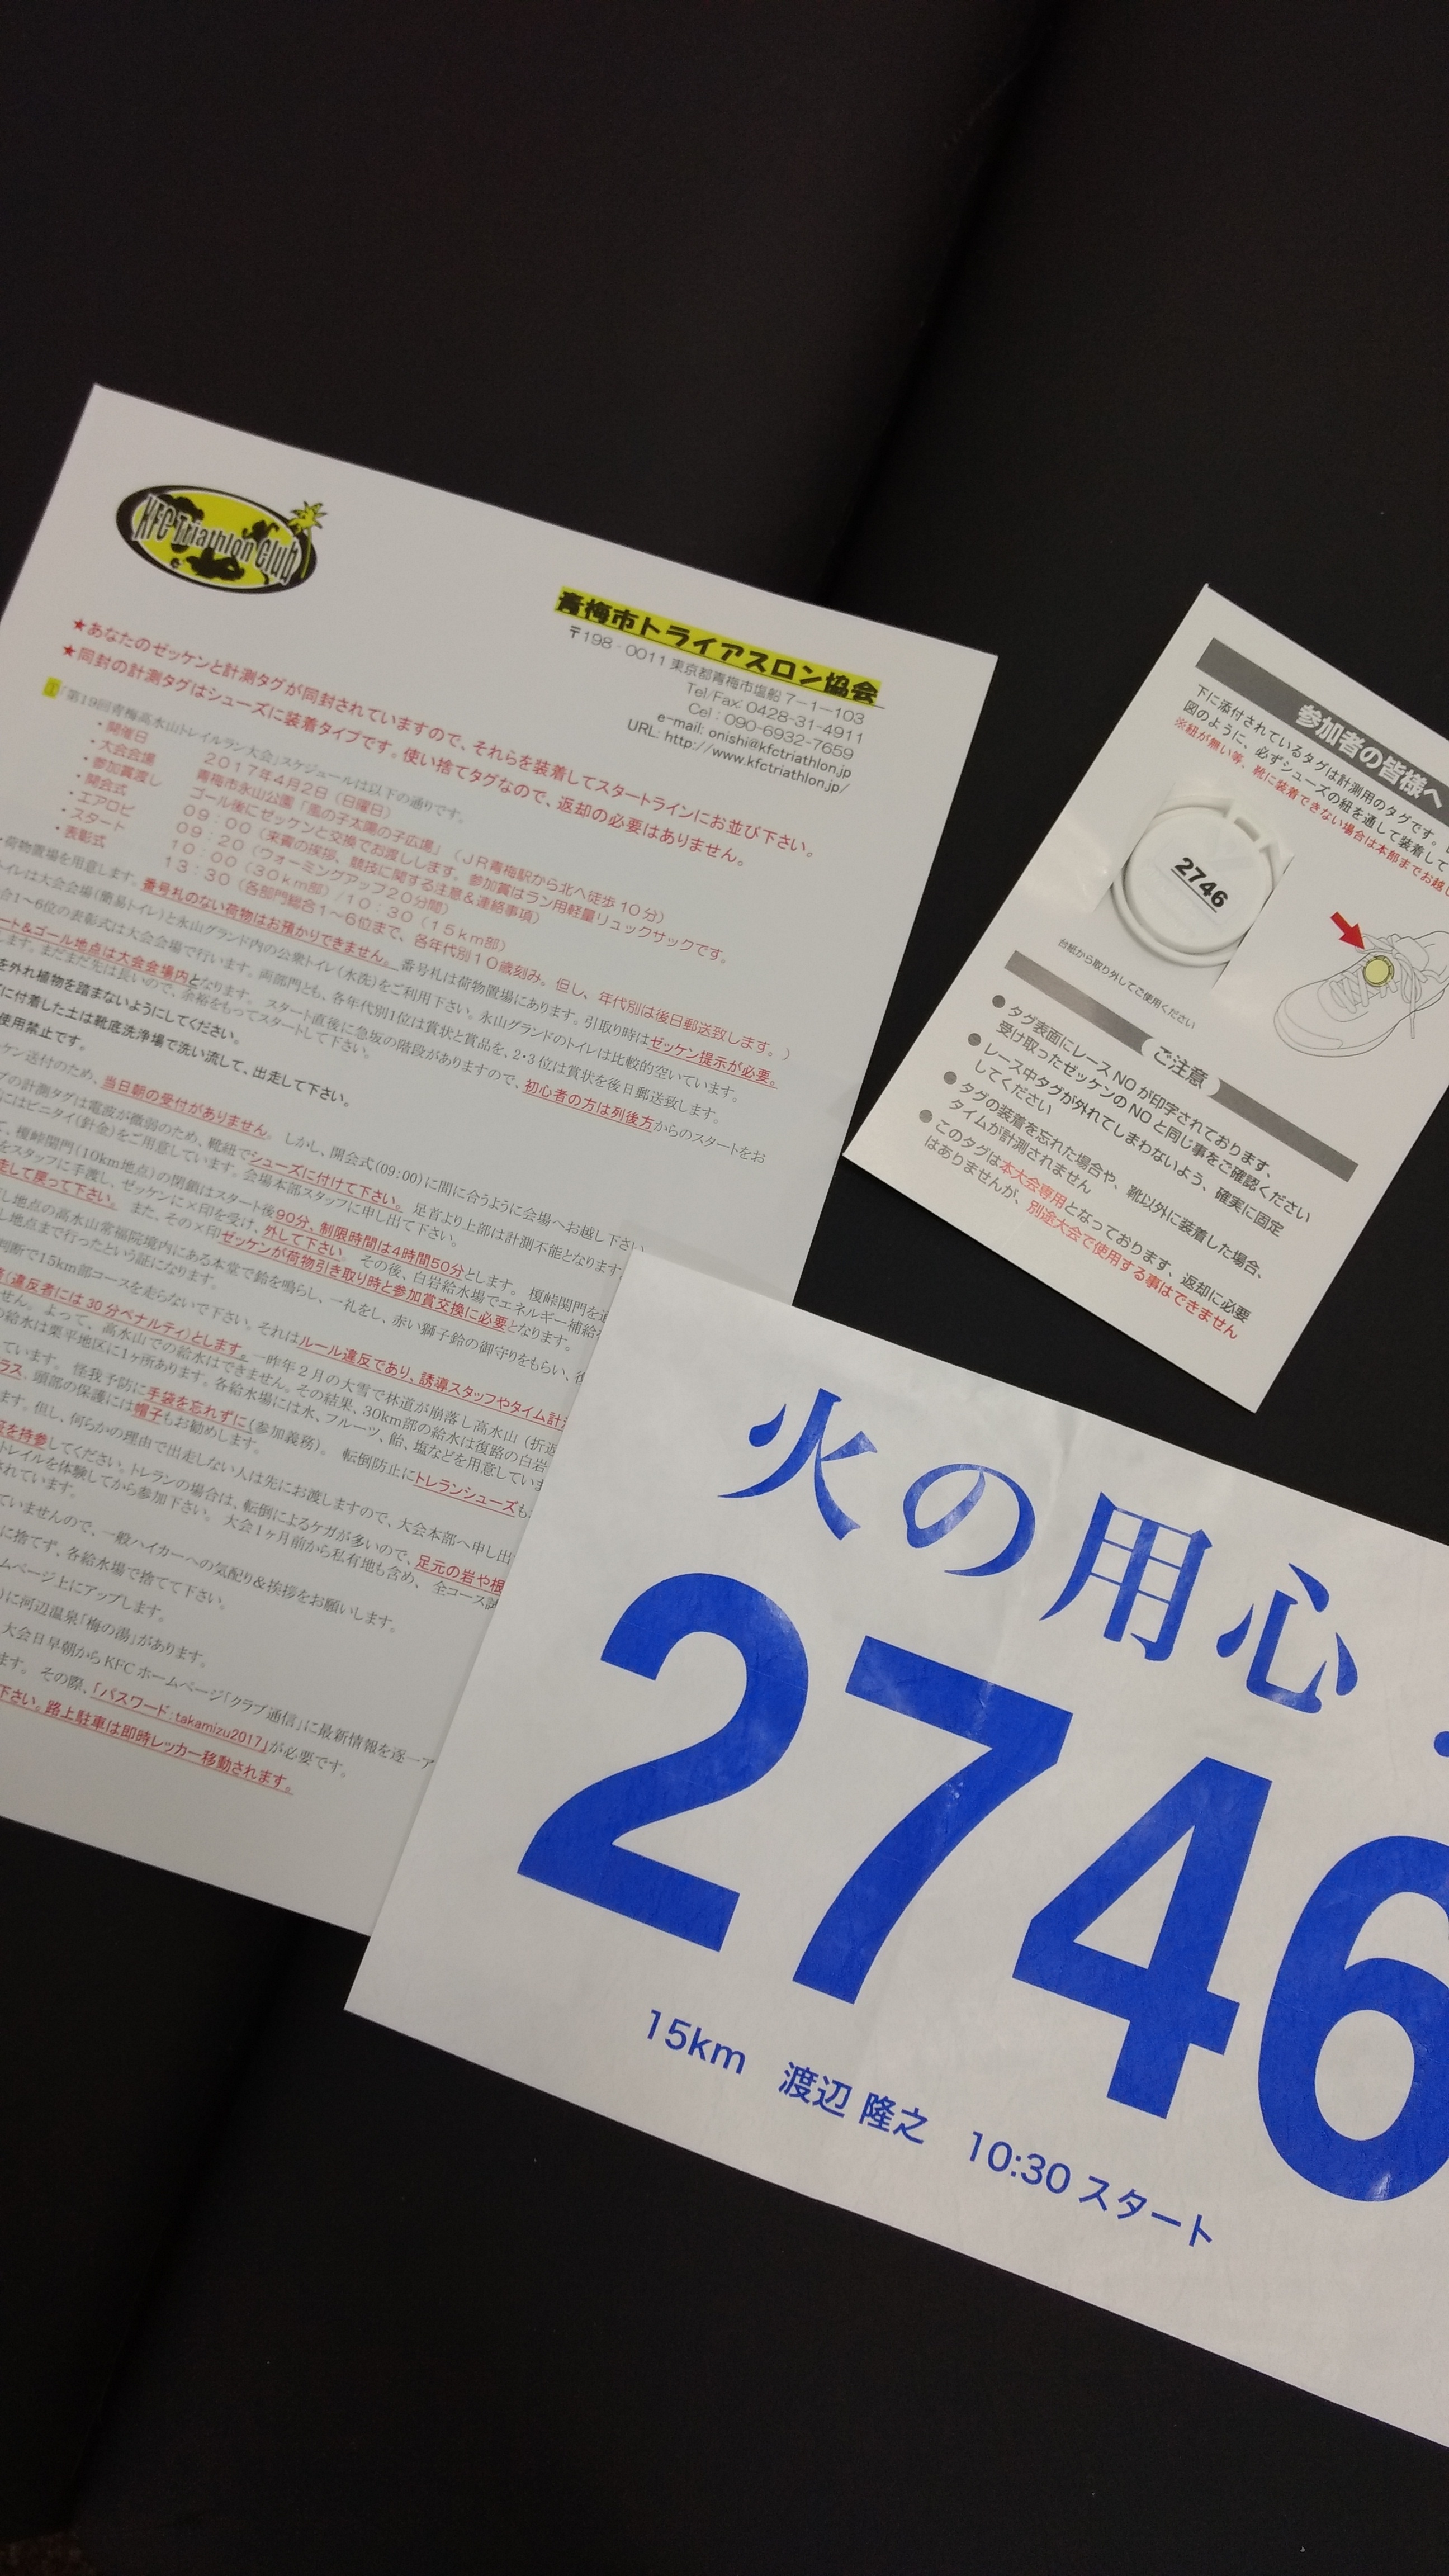 KFC Triathlon Club
青梅市トライアスロン協会
〒198-0011 東京都青梅市塩船7-1-103
Tel/Fax: 0428-31-4911
Cel : 090-6932-7659
e-mail: onishi@kfctriathlon.jp
URL: http://www.kfctriathlon.jp/
★あなたのゼッケンと計測タグが同封されていますので、それらを装着してスタートラインにお並び下さい。
★同封の計測タグはシューズに装着タイプです。使い捨てタグなので、返却の必要はありません。
①「第19回青梅高水山トレイルラン大会」スケジュールは以下の通りです。
・開催日 2017年4月2日（日曜日）
・大会会場 青梅市永山公園「風の子太陽の子広場」（JR青梅駅から北へ徒歩10分）
・参加賞渡し ゴール後にゼッケンと交換でお渡しします。参加賞はラン用軽量リュックサックです。
・開会式 09:00（来賓の挨拶、競技に関する注意＆連絡事項）
・エアロビ 09:20（ウォーミングアップ20分間）
・スタート 10:00（30km部）／10:30（15km部）
・表彰式 13:30（各部門総合1～6位まで、各年代別10歳刻み。但し、年代別は後日郵送致します。）
荷物置場を用意します。番号札のない荷物はお預かりできません。番号札は荷物置場にあります。引取り時はゼッケン提示が必要。
トイレは大会会場(簡易トイレ)と永山グランド内の公衆トイレ(水洗)をご利用下さい。永山グランドのトイレは比較的空いています。
合1～6位の表彰式は大会会場で行います。両部門とも、各年代別1位は賞状と賞品を、2・3位は賞状を後日郵送致します。
ート＆ゴール地点は大会会場内となります。スタート直後に急坂の階段がありますので、初心者の方は列後方からのスタートをお
します。まだまだ先は長いので、余裕をもってスタートして下さい。
を外れ植物を踏まないようにしてください。
に付着した土は靴底洗浄場で洗い流して、出走して下さい。
使用禁止です。
ケン送付のため、当日朝の受付がありません。しかし、開会式(09:00)に間に合うように会場へお越し下さい。
グの計測タグは電波が微弱のため、靴紐でシューズに付けて下さい。足首より上部は計測不能となります
にはビニタイ(針金)をご用意しています。会場本部スタッフに申し出て下さい。
て、榎峠関門(10km地点)の閉鎖はスタート後90分、制限時間は4時間50分とします。榎峠関門を
をスタッフに手渡し、ゼッケンに×印を受け、外して下さい。その後、白岩給水場でエネルギー補給
走して戻って下さい。また、その×印ゼッケンが荷物引き取り時と参加賞交換に必要となります。
し地点の高水山常福院境内にある本堂で鈴を鳴らし、一礼をし、赤い獅子鈴の御守りをもらい、
し地点まで行ったという証になります。
判断で15km部コースを走らないで下さい。それはルール違反であり、誘導スタッフやタイム計
(違反者には30分ペナルティ)とします。一昨年2月の大雪で林道が崩落し高水山（折返
せん。よって、高水山での給水はできません。その結果、30km部の給水は復路の白岩
の給水は栗平地区に1ヶ所あります。各給水場には水、フルーツ、飴、塩などを用意してい
ています。怪我予防に手袋を忘れずに(参加義務)。転倒防止にトレランシューズも
ラス、頭部の保護には帽子もお勧めします。
ます。但し、何らかの理由で出走しない人は先にお渡しますので、大会本部へ申し出
証を持参してください。トレランの場合は、転倒によるケガが多いので、足元の岩や根
トレイルを体験してから参加下さい。大会1ヶ月前から私有地も含め、全コース試
されています。
ていませんので、一般ハイカーへの気配り＆挨拶をお願いします。
に捨てず、各給水場で捨てて下さい。
ムページ上にアップします。
)に河辺温泉「梅の湯」があります。
大会日早朝からKFCホームページ「クラブ通信」に最新情報を逐一ア
ます。その際、「パスワード：takamizu2017」が必要です。
下さい。路上駐車は即時レッカー移動されます。
参加者の皆様へ
下に添付されているタグは計測用のタグです。
図のように、必ずシューズの紐を通して装着して
※紐が無い等、靴に装着できない場合は本部までお越し
2746
台紙から取り外してご使用ください
ご注意
●タグ表面にレースNOが印字されております、
受け取ったゼッケンのNOと同じ事をご確認ください
●レース中タグが外れてしまわないよう、確実に固定
してください
●タグの装着を忘れた場合や、靴以外に装着した場合、
タイムが計測されません
●このタグは本大会専用となっております、返却に必要
はありませんが、別途大会で使用する事はできません
火の用心
2746
15km 渡辺 隆之 10:30 スタート